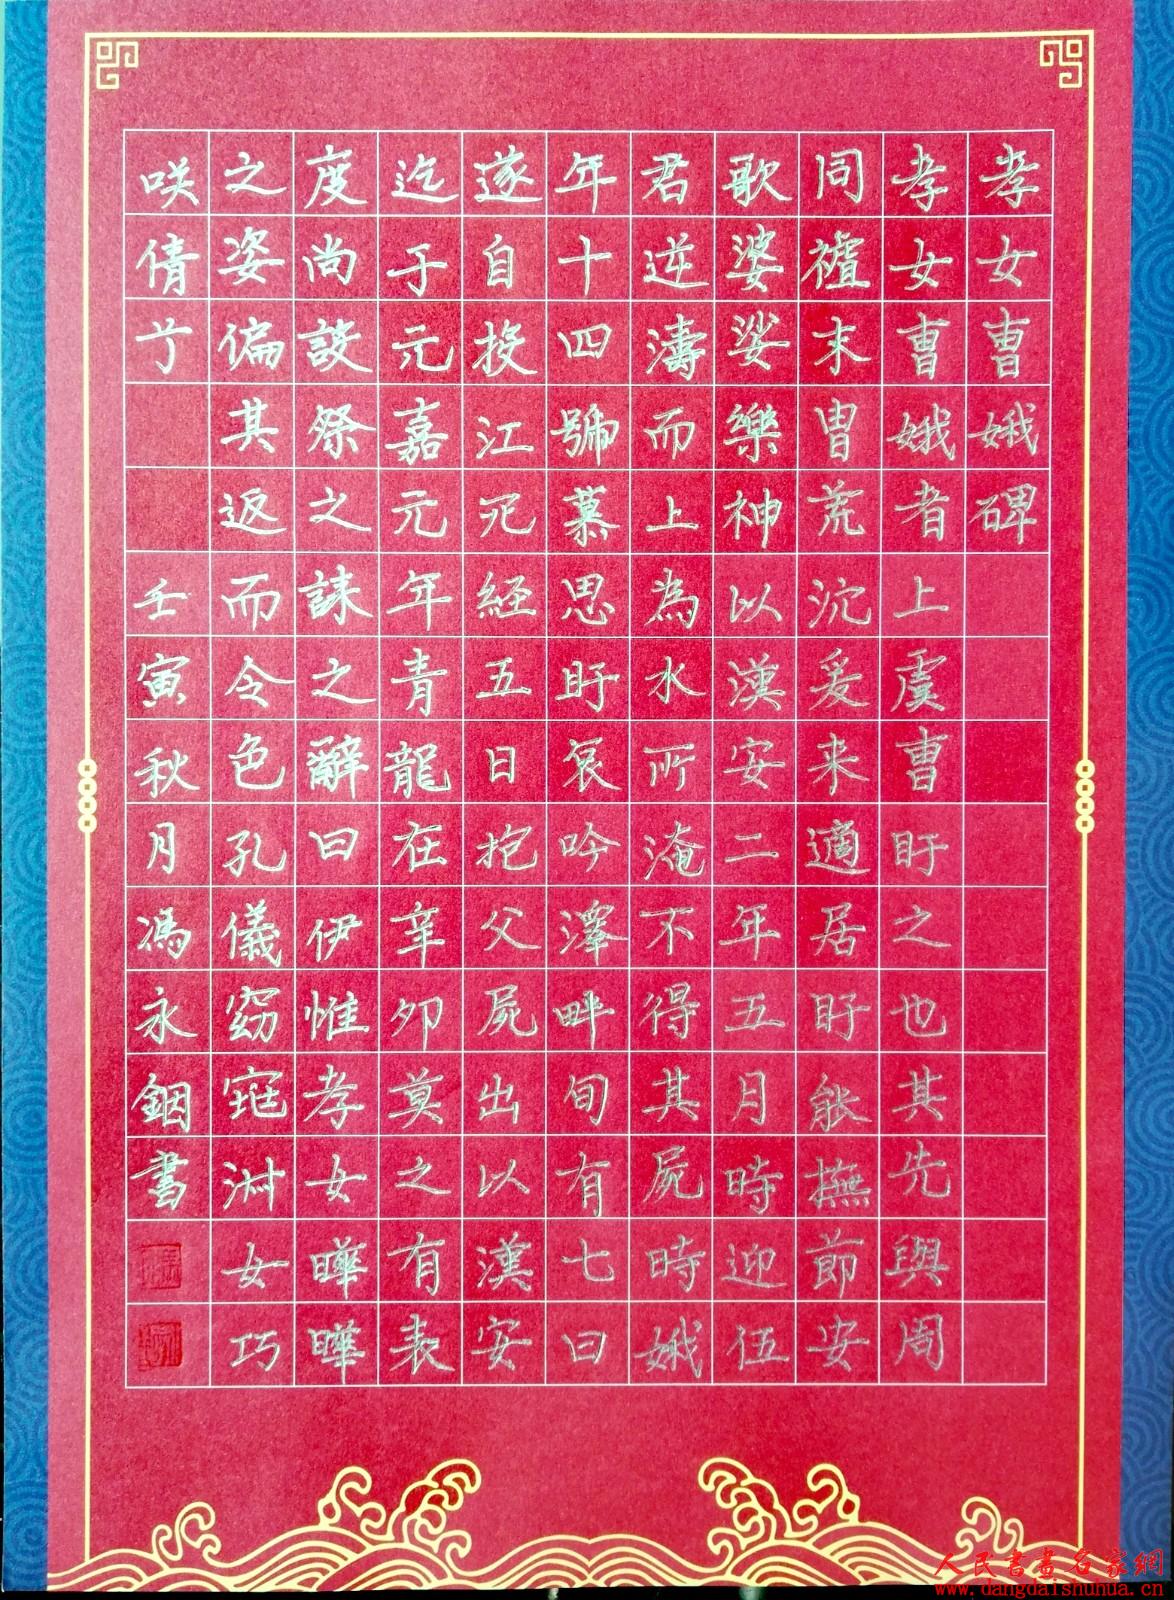 孝女曹娥碑
孝女曹娥者上虞曹盱之也其先與周
同禃末胄荒沉爰来適居盱能撫節安
歌婆娑樂神以漢安二年五月時迎伍
君逆濤而上為水所淹不得其屍時娥
年十四號慕思盱哀吟澤畔旬有七日
遂自投江死經五日抱父屍出以漢安
迄于元嘉元年青龍在辛卯莫之有表
度尚設祭之誄之辭曰伊惟孝女曄曄
之姿偏其返而令色孔儀窈窕淑女巧
咲倩兮 壬寅秋月馮永銦書
人民書畫名家網
www.dangdaishuhua.cn